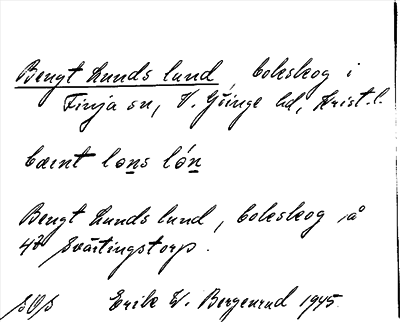 Bengt Lunds lund, bokskog i
Finja sn, V. Göinge hd, Krist. l.
bæŋt lons lón
Bengt Lunds lund, bokskog å
4² Svärtingstorp.
Erik W. Bergenrud 1945.